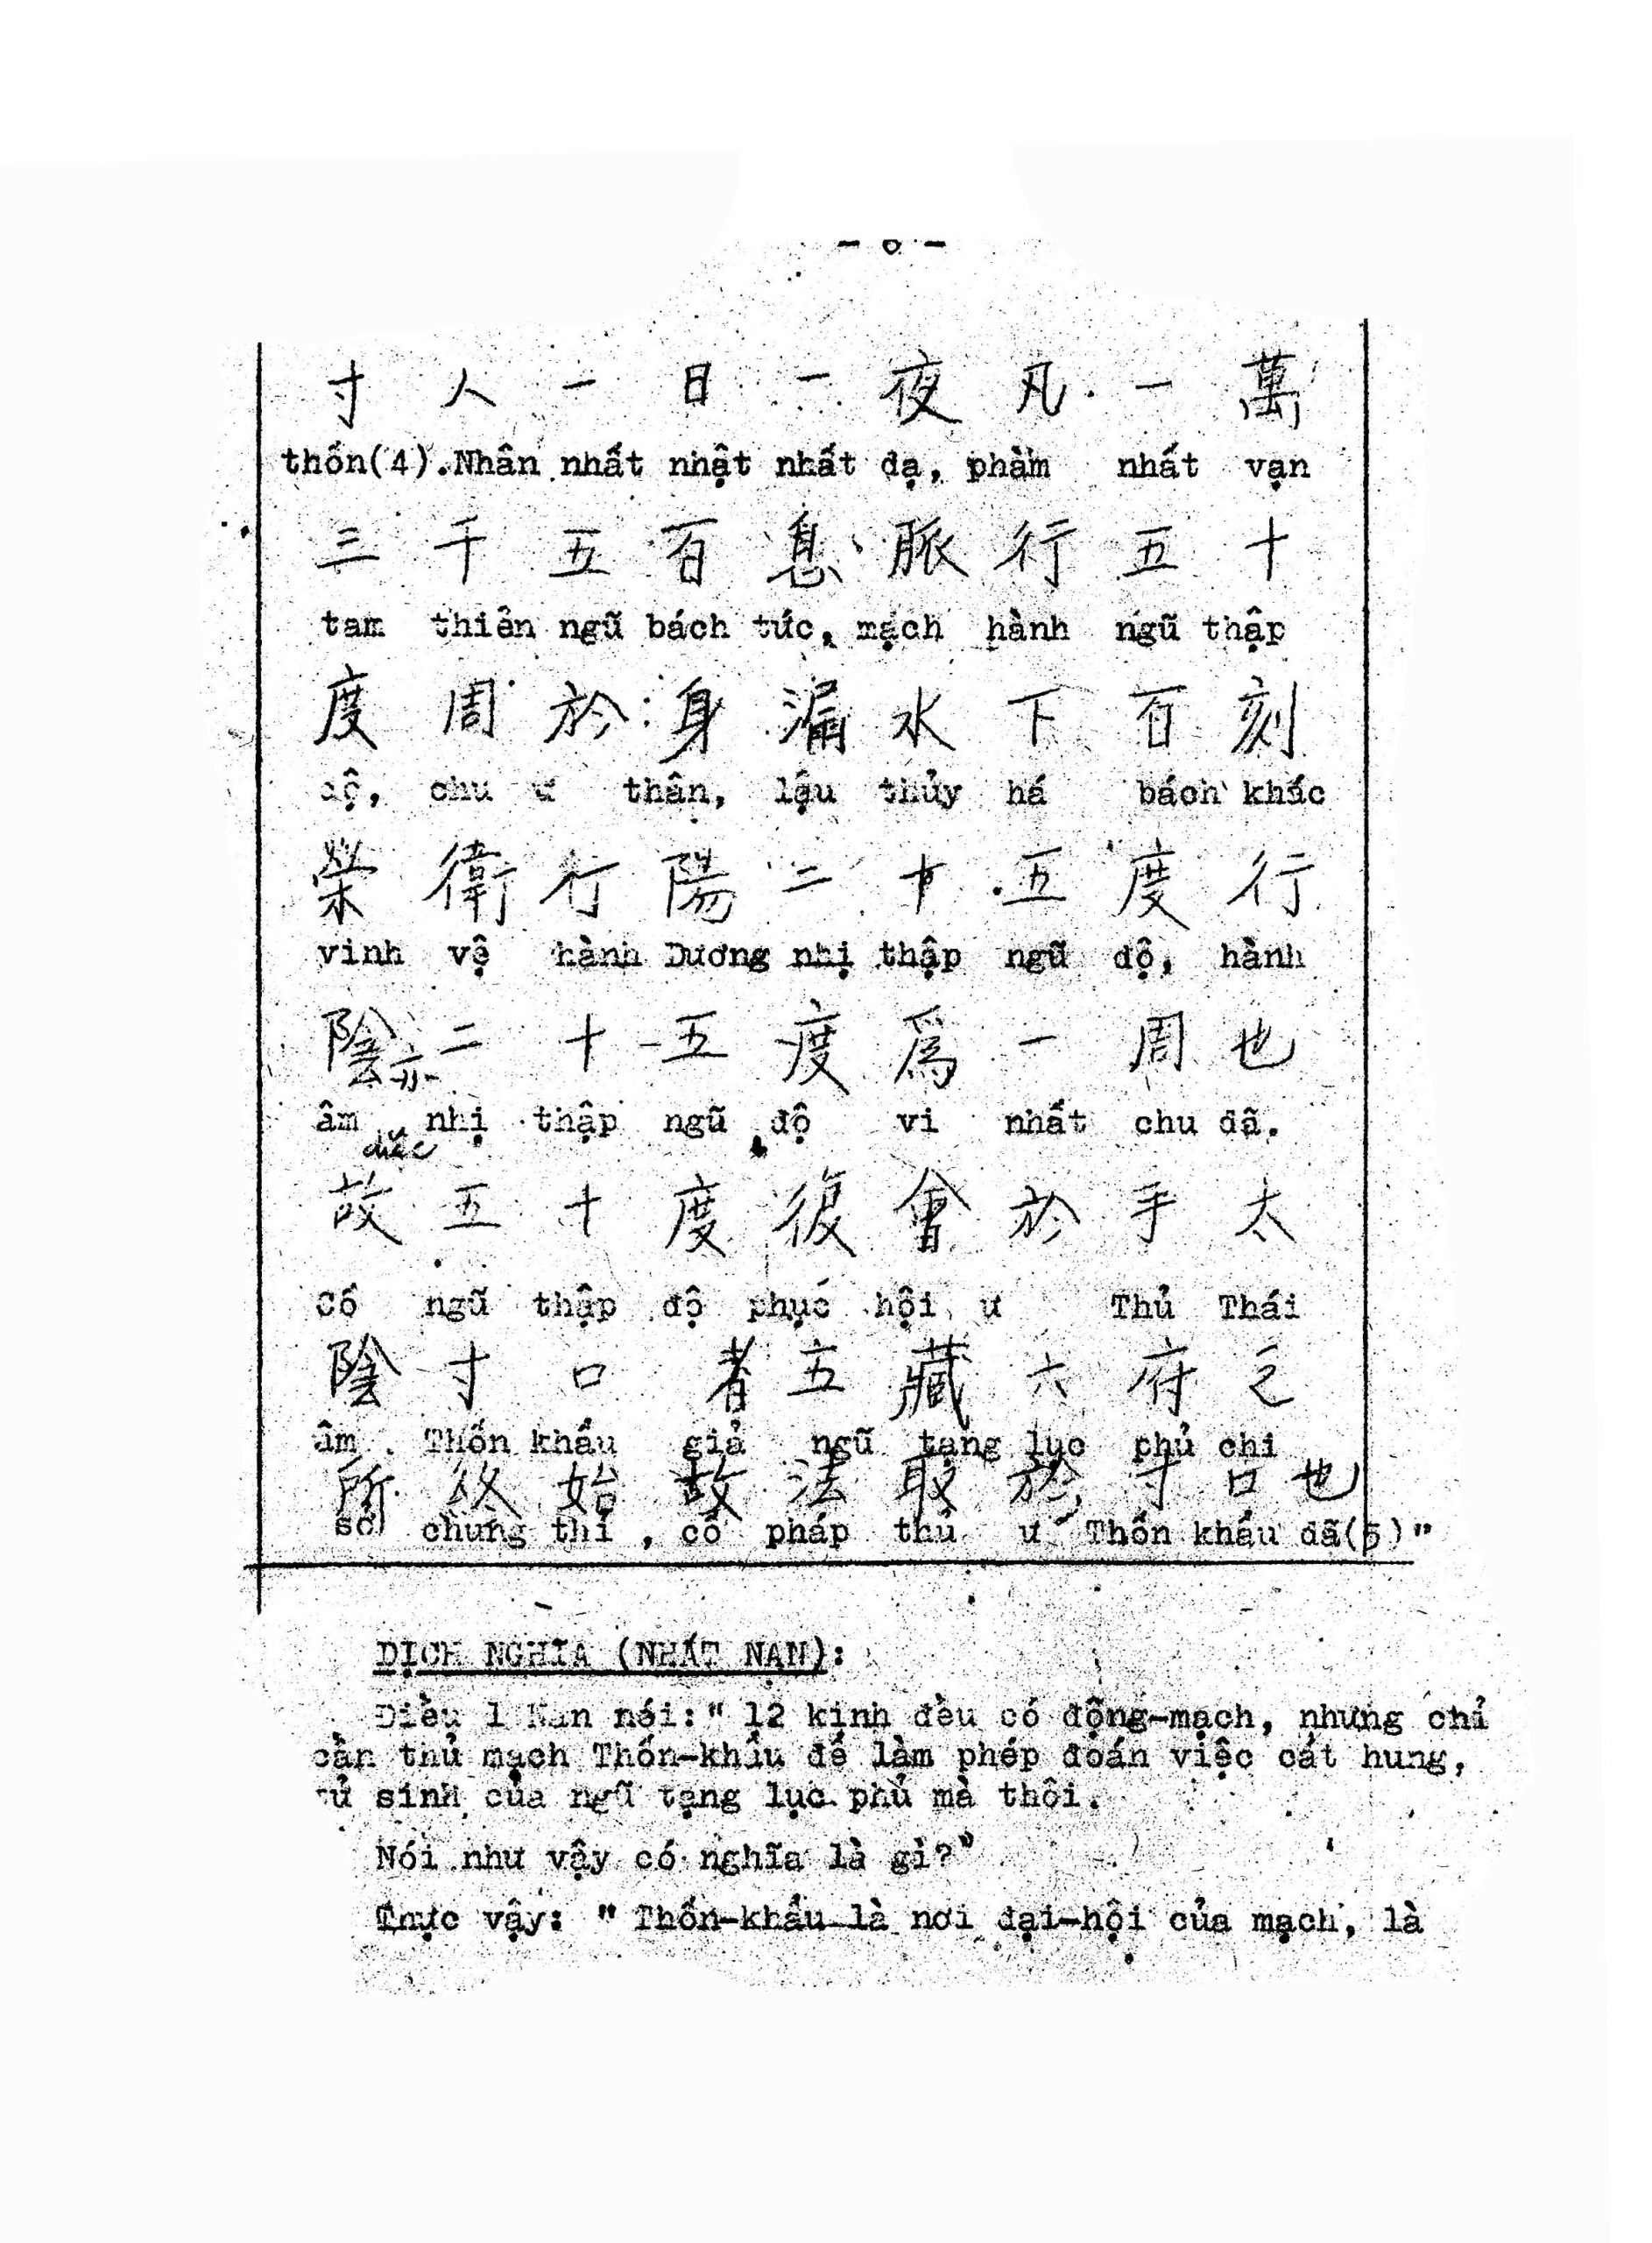 - 6 -
寸 人 一 日 一 夜 凡 一 萬
thốn(4).Nhân nhất nhật nhất dạ, phàm nhất vạn
三 千 五 百 息 脈 行 五 十
tam thiên ngũ bách tức, mạch hành ngũ thập
度 周 於 身 漏 水 下 百 刻
độ, chu ư thân, lậu thủy há bách khắc
榮 衛 行 陽 二 十 五 度 行
vinh vệ hành Dương nhị thập ngũ độ, hành
陰 亦 二 十 五 度 爲 一 周 也
âm diệc nhị thập ngũ độ vi nhất chu dã.
故 五 十 度 復 會 於 手 太
Cố ngũ thập độ phục hội ư Thủ Thái
陰 寸 口 者 五 藏 六 府 之
âm Thốn khẩu giả ngũ tạng lục phủ chi
所 終 始 故 法 取 於 寸 口 也
sở chung thỉ , cố pháp thủ ư Thốn khẩu dã(5)"
DỊCH NGHĨA (NHẤT NẠN):
Điều 1 Nan nói:" 12 kinh đều có động-mạch, nhưng chỉ
cần thủ mạch Thốn-khẩu để làm phép đoán việc cát hung,
tử sinh của ngũ tạng lục phủ mà thôi.
Nói như vậy có nghĩa là gì?"
Thực vậy: " Thốn-khẩu là nơi đại-hội của mạch, là